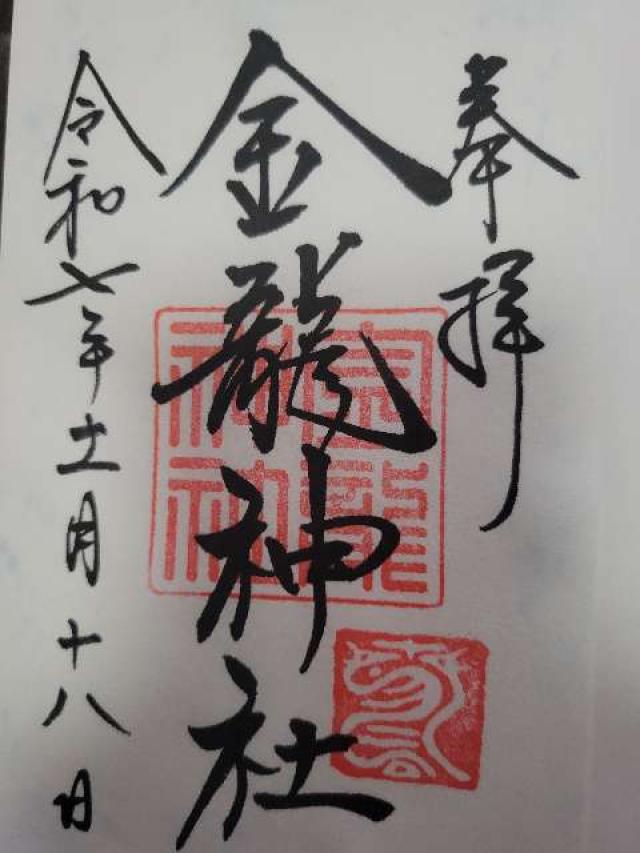 奉拝
金龍神社
金龍神社
令和七年十一月十八日